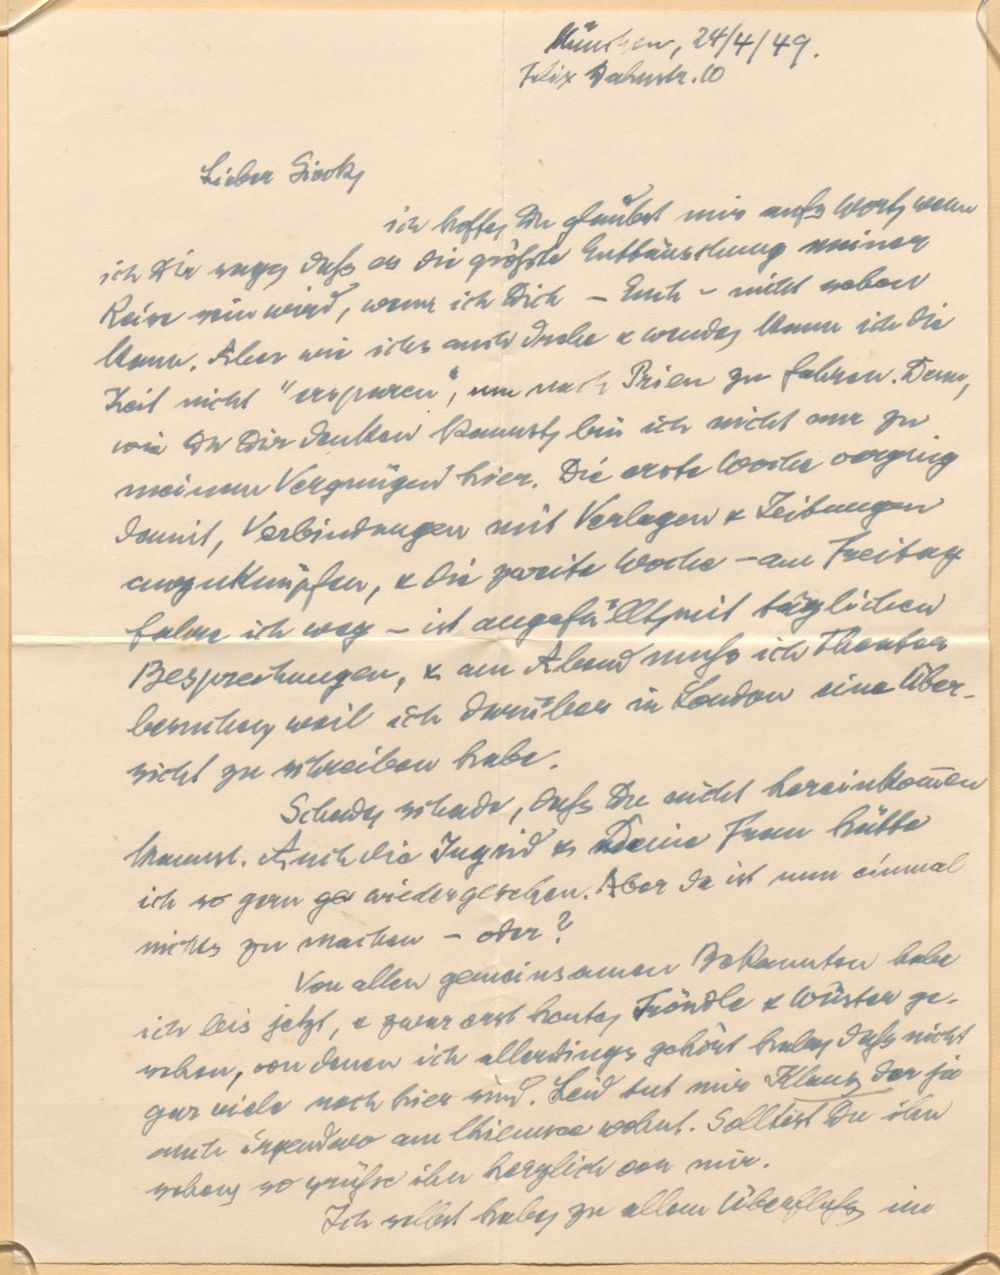 München, 24/4/49.
Felix Dahnstr. 10
Lieber
ich hoffe, Du glaubst mir aufs Wort, wenn
ich Dir sage, daß es die größte Enttäuschung meiner
Reise sein wird, wenn ich Dich – Euch – nicht sehen
kann. Aber wie ichs auch drehe & wende, kann ich die
Zeit nicht "ersparen", um nach Prien zu fahren. Denn,
wie Du Dir denken kannst, bin ich nicht nur zu
meinem Vergnügen hier. Die erste Woche verging
damit, Verbindungen mit Verlagen & Zeitungen
anzuknüpfen, & die zweite Woche – am Freitag
fahre ich weg – ist angefüllt mit täglichen
Besprechungen, & am Abend muß ich Theater
besuchen, weil ich darüber in London eine Über-
sicht zu schreiben habe.
Schade, schade, daß Du nicht hereinkommen
kannst. Auch die Ingrid & Deine Frau hätte
ich so gern wiedergesehen. Aber da ist nun einmal
nichts zu machen – oder?
Von allen gemeinsamen Bekannten habe
ich bis jetzt, & zwar erst heute, Tröndle & Wüsten ge-
sehen, von denen ich allerdings gehört habe, daß nicht
gar viele noch hier sind. Leid tut mir Klaus, der ja
auch irgendwo am Chiemsee wohnt. Solltest Du ihn
sehen, so grüße ihn herzlich von mir.
Ich selbst habe, zu allem Überfluß, im